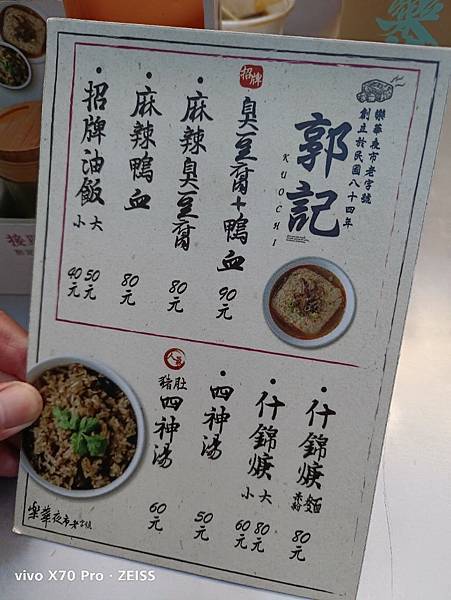 樂華夜市老字號
創立於民國八十四年
郭記
KUO CHI
招牌
臭豆腐+鴨血
90元
麻辣臭豆腐
80元
麻辣鴨血
80元
招牌油飯
大 50元
小 40元
什錦焿 米粉 麵
80元
什錦焿
大 80元
小 60元
四神湯
50元
人氣
豬肚四神湯
60元
樂華夜市老字號
vivo X70 Pro · ZEISS